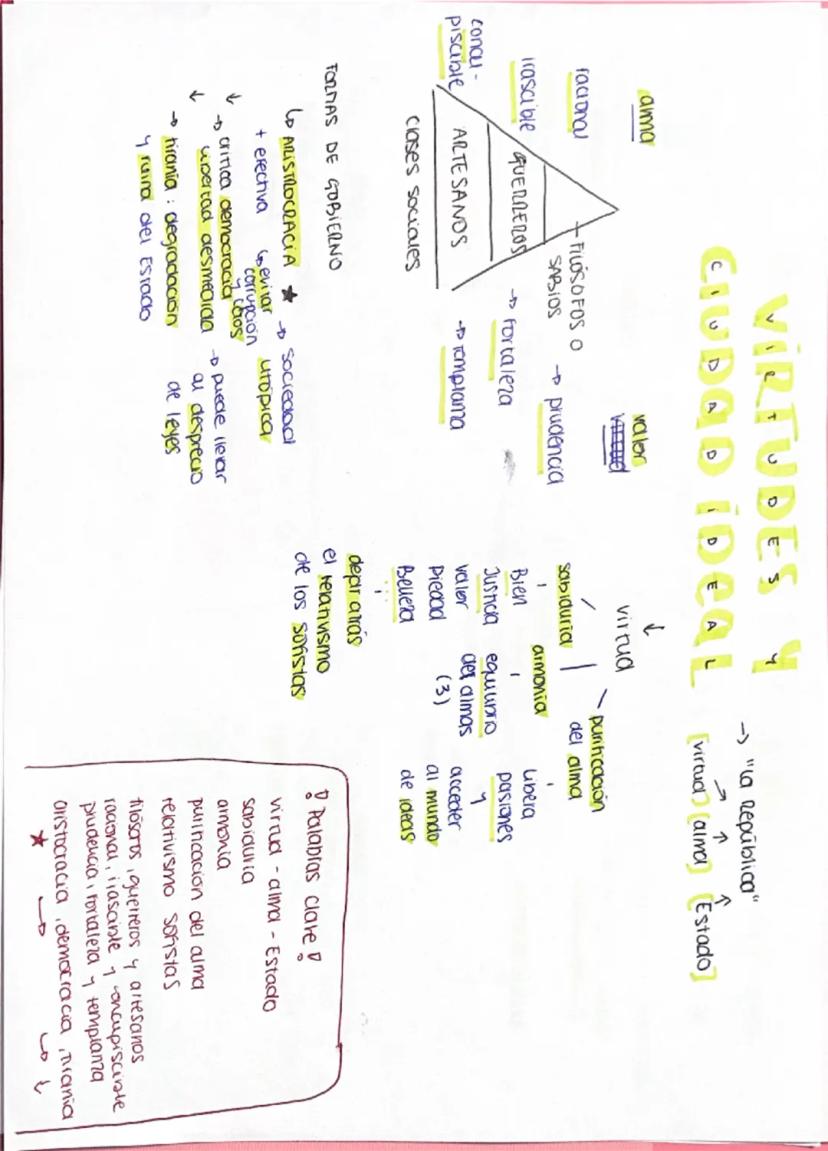 VIRTUDES Y
VIRTUDES Y
CIUDAD IDEAL
CIUDAD IDEAL
→ "La República"
[virtud] [alma] [Estado]
alma
valor
racional
irascible
concu-
piscible
FILÓSOFOS O
SABIOS
GUERREROS
ARTESANOS
clases sociales
→ prudencia
→ Fortaleza
→ Templanza
virtud
sabiduría
Bien
Justicia
valor
Piedad
Belleza
armonía
equilibrio
del almas
(3)
purificación
del alma
libera
pasiones
y
acceder
al mundo
de ideas
depr atrás
el relativismo
de los sofistas
FORMAS DE GOBIERNO
↳ ARISTROCRACIA ★ → sociedad
utrópica
+ efectiva ↳ evitar
corrupción
y caos
↓ → critica democracia
libertad desmedida → puede llevar
al desprecio
de leyes
↓ → tiranía: degradación
y ruina del Estado
! Palabras clave !
virtud - alma - Estado
sabiduría
armonía
purificación del alma
relativismo sofistas
filósofos, guerreros y artesanos
racional, irascible y concupiscible
prudencia, fortaleza y templanza
aristocracia, democracia, tiranía
★ → ↳ ↓